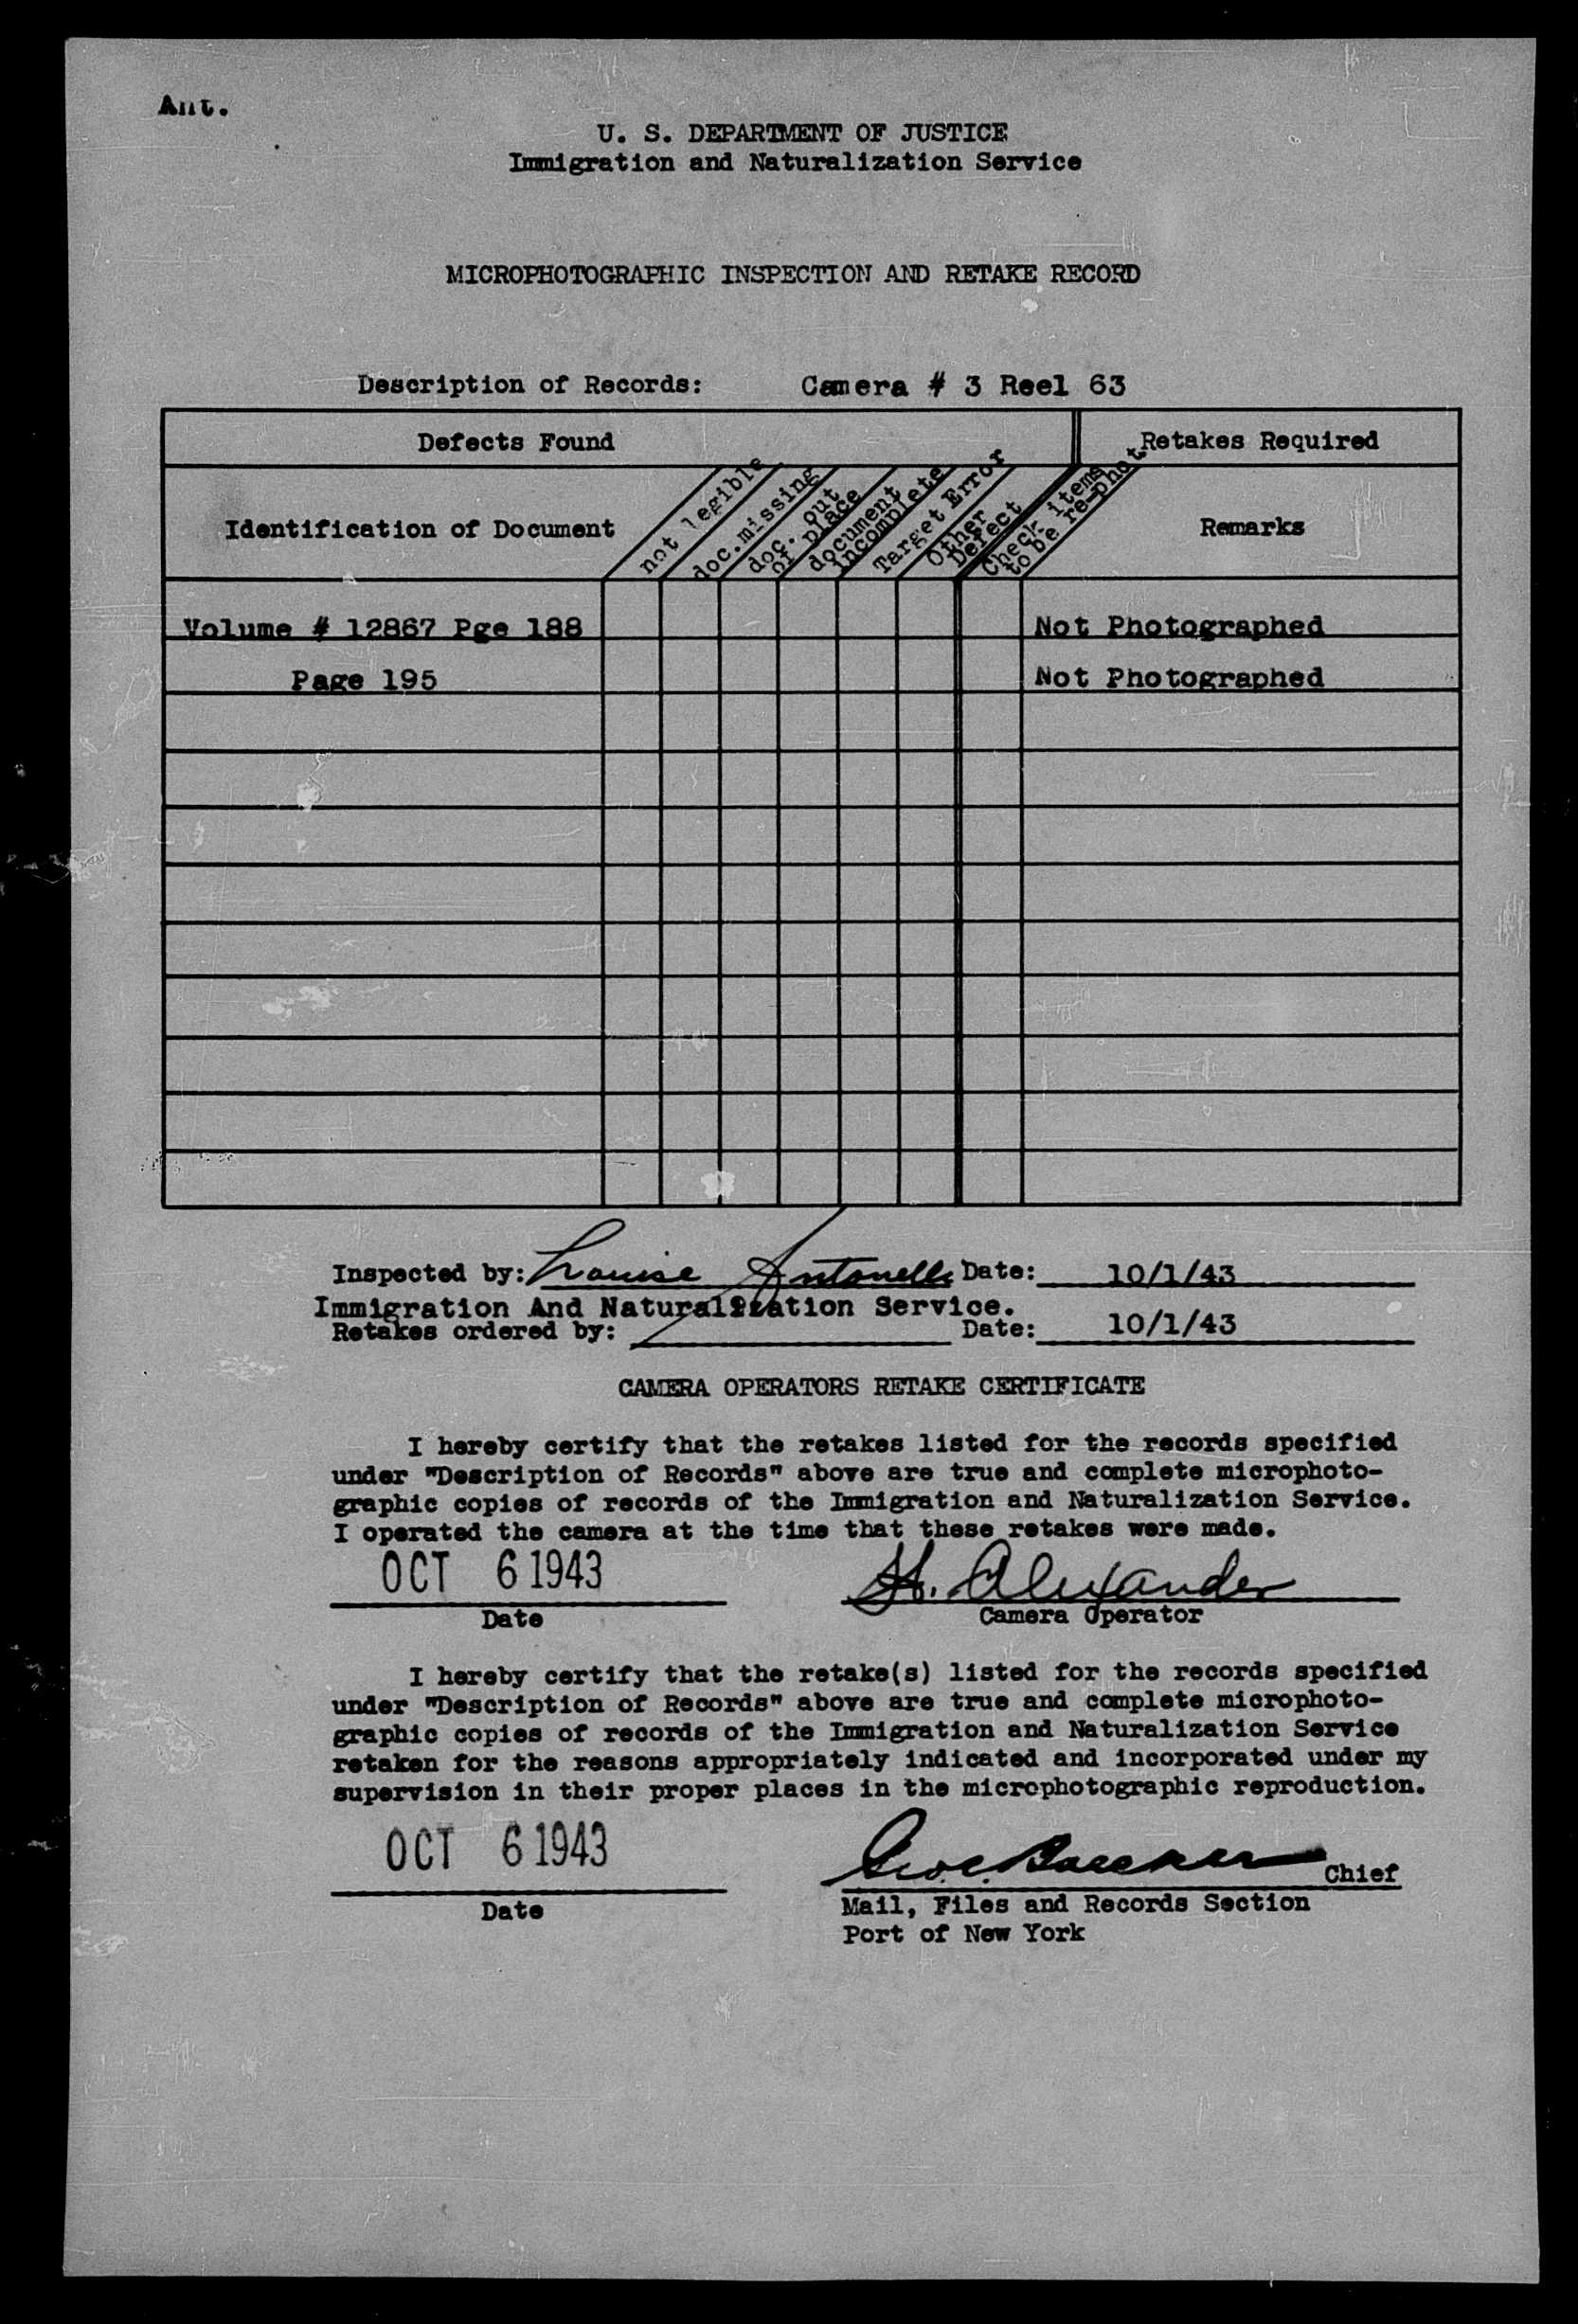 Ant.
U. S. DEPARTMENT OF JUSTICE
Immigration and Naturalization Service
MICROPHOTOGRAPHIC INSPECTION AND RETAKE RECORD
Description of Records: Camera # 3 Reel 63
Defects Found
Retakes Required
Identification of Document
not legible
doc. missing
doc. out
of place
document
incomplete
Target Error
Other
Defect
Check items
to be re-phot
Remarks
Volume # 12867 Pge 188 Not Photographed
Page 195 Not Photographed
Inspected by: Louise Antonelli Date: 10/1/43
Immigration And Naturalization Service.
Retakes ordered by: Date: 10/1/43
CAMERA OPERATORS RETAKE CERTIFICATE
I hereby certify that the retakes listed for the records specified
under "Description of Records" above are true and complete microphoto-
graphic copies of records of the Immigration and Naturalization Service.
I operated the camera at the time that these retakes were made.
OCT 6 1943 H. Alexander
Date Camera Operator
I hereby certify that the retake(s) listed for the records specified
under "Description of Records" above are true and complete microphoto-
graphic copies of records of the Immigration and Naturalization Service
retaken for the reasons appropriately indicated and incorporated under my
supervision in their proper places in the microphotographic reproduction.
OCT 6 1943
Chief
Date
Mail, Files and Records Section
Port of New York